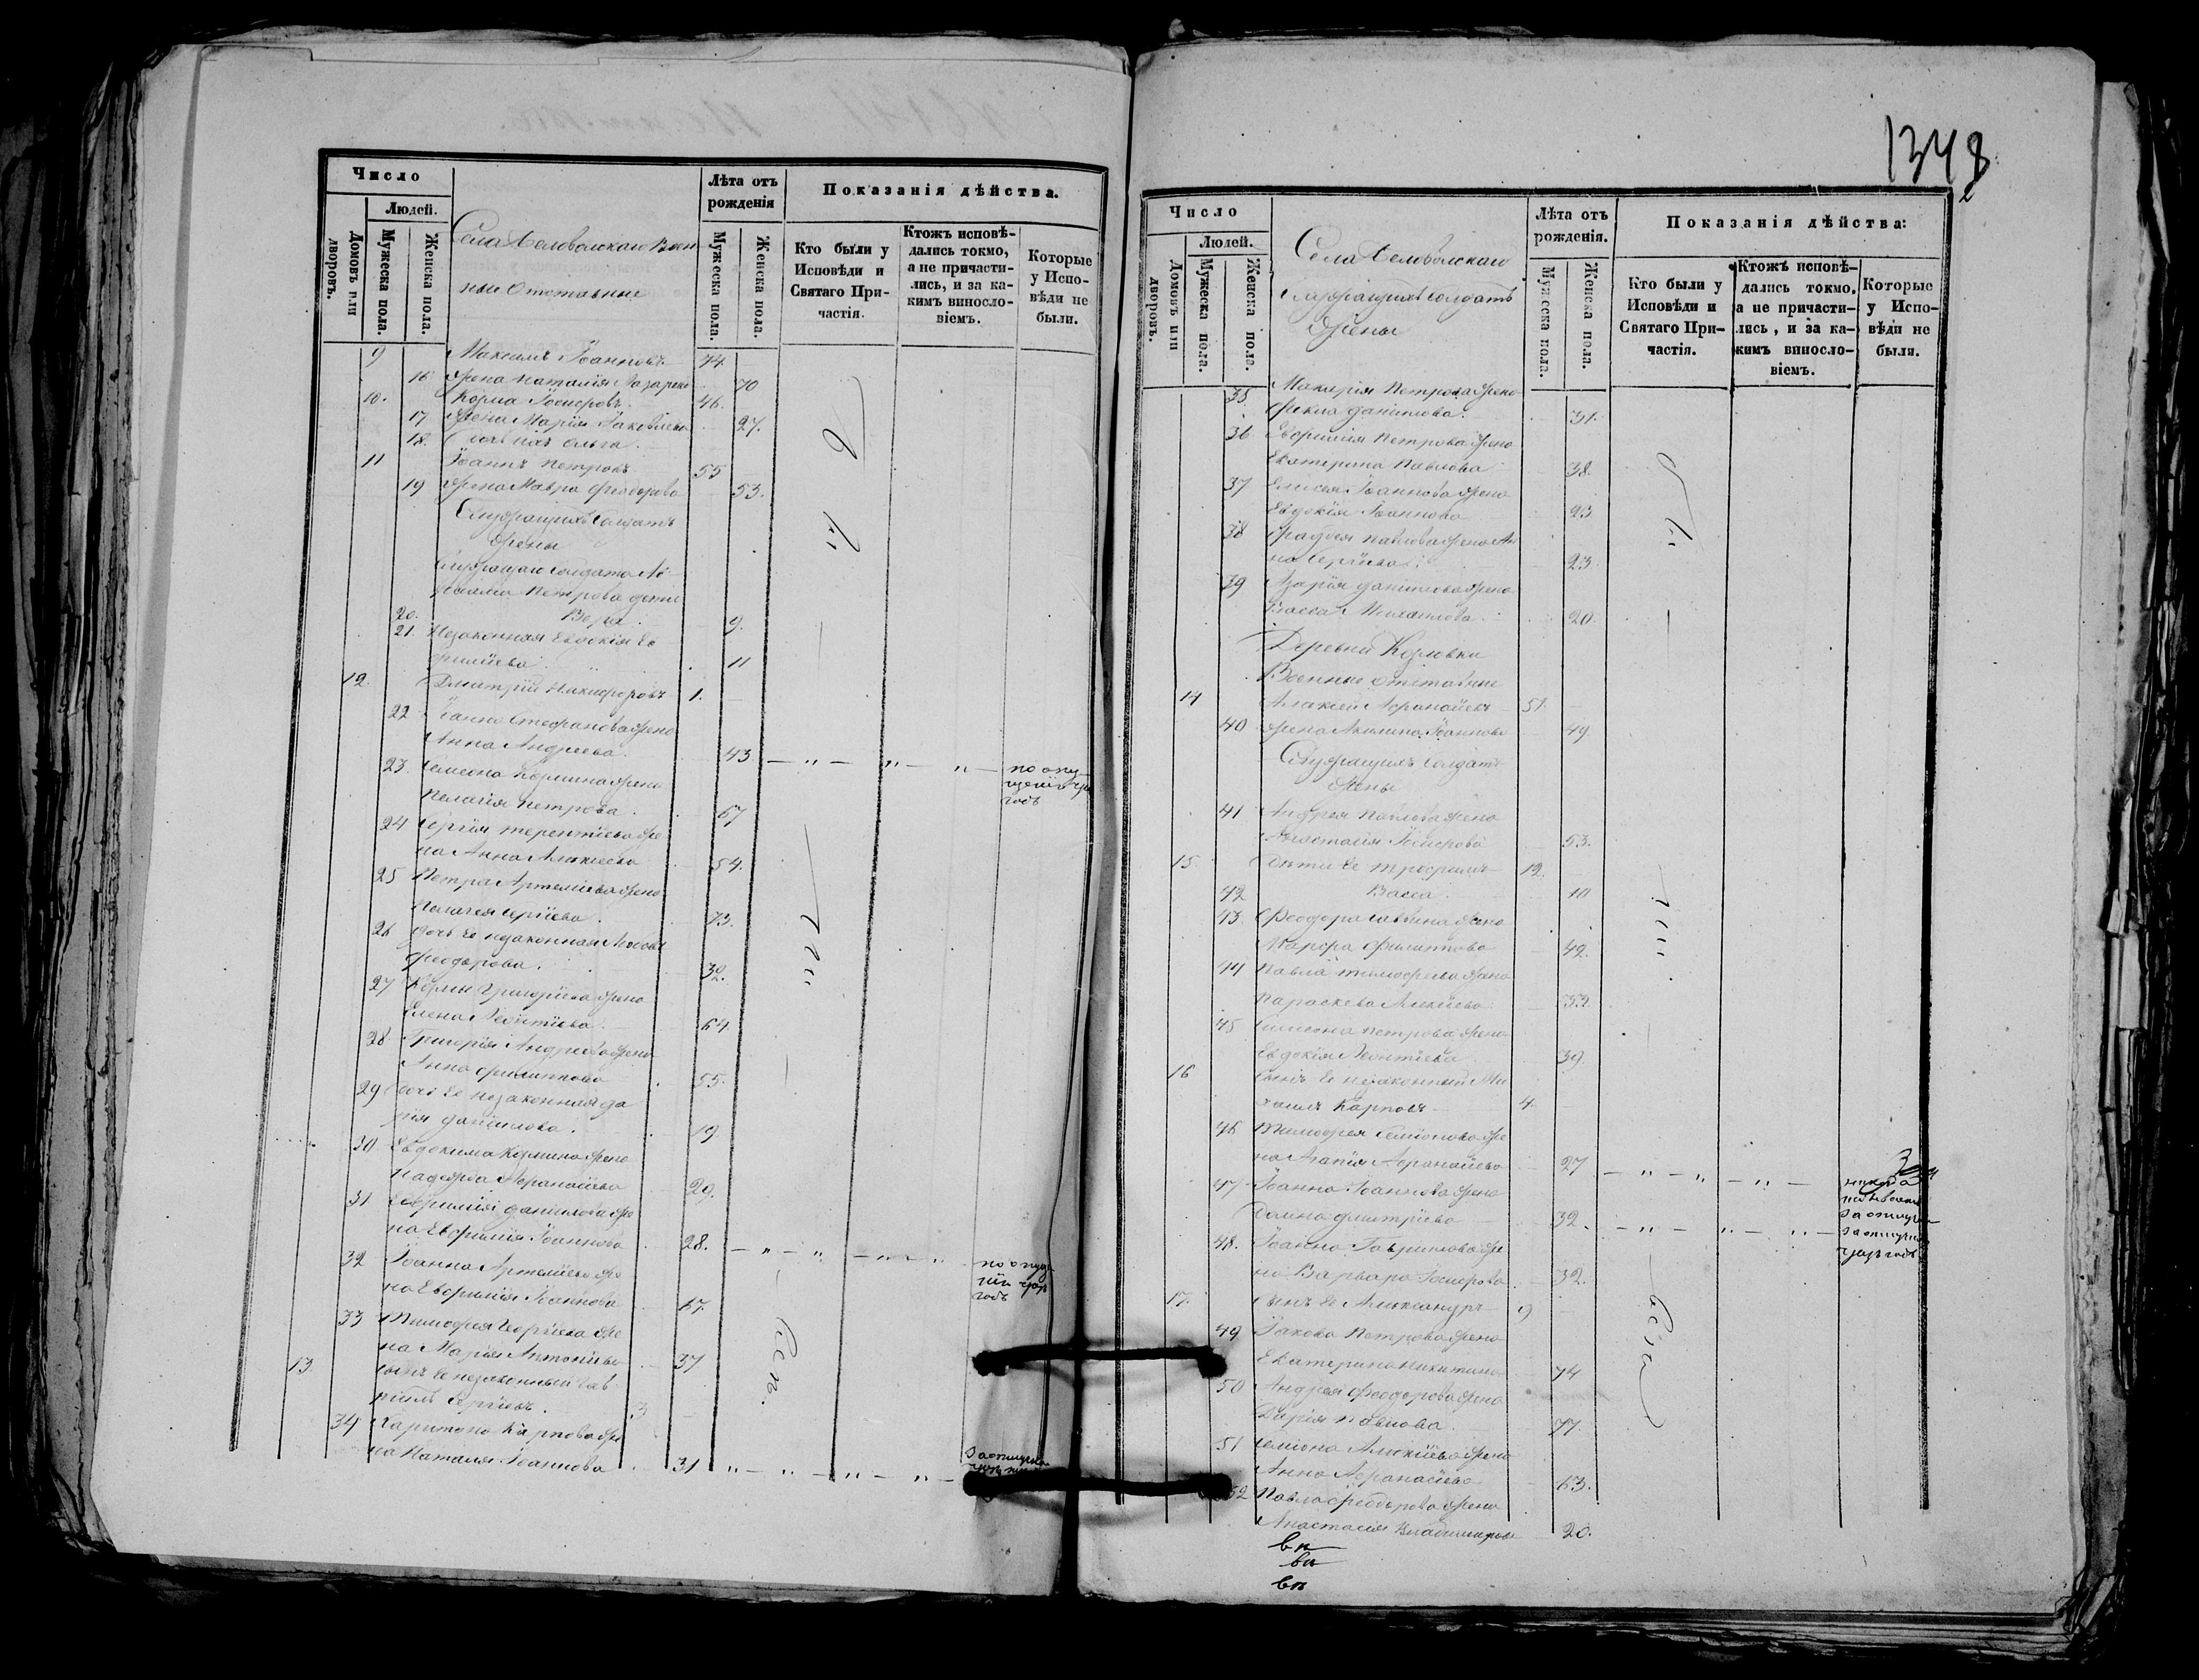 Число
Людей.
Домовъ или дворовъ.
Мужеска пола.
Женска пола.
Села
ные Отставные
Лѣта отъ рожденія
Мужеска пола.
Женска пола.
Показанія дѣйства.
Кто были у Исповѣди и Святаго При-частія.
Ктожъ исповѣ-дались токмо, а не причасти-лись, и за ка-кимъ винослo-віемъ.
Которые у Испо-вѣди не были.
9 Максимъ Іоанновъ 74
16 Жена Наталія 70
10. Козма Іосифовъ. 46.
17 Жена Марія Іаковлева 27.
18. Дочь ихъ Ольга.
11 Іоаннъ Петровъ 55
19 Жена Мавра Феодорова 53.
Служащихъ Солдатъ
жены
Служащаго Солдата
Петрова дочь
20. Вѣра 9.
21. Незаконная Евдокія
11
12. Димитрій Никифоровъ 1.
22 Іоанна Стефанова жена
Анна Андреева. 43
по опу-
23. Симеона Козмина жена
Пелагія Петрова. 67
24 Сергія Терентіева же
на Анна Алексіева 54.
25 Петра Артеміева жена
Пелагея Сергіева. 73.
26 Дочь ее незаконная Любовь
Феодорова. 32.
27 Козмы Григоріева жена
Елена Леонтіева. 64
28 Григорія Андреева жена
Анна Филиппова 55.
29 Дочь ее незаконная Да
рія Данилова. 19.
30 Евдокима Козмина жена
Надежда Афанасіева 29.
31 Евфимія Данилова же
на Евфимія Іоаннова 28.
32 Іоанна Артеміева же
на Евфимія Іоаннова 67.
33 Тимофея Георгіева же
на Марія Антоніева 37
13. Сынъ ее незаконный Гав
ріилъ Сергіевъ. 3
34 Харитона Карпова же
на Наталя Іоаннова 31
1348
Число
Людей.
Домовъ или дворовъ.
Мужеска пола.
Женска пола.
Села
Служащихъ Солдатъ
Жены
Лѣта отъ рожденія.
Мужеска пола.
Женска пола.
Показанія дѣйства:
Кто были у Исповѣди и Святаго При-частія.
Ктожъ исповѣ-дались токмо, а не причасти-лись, и за ка-кимъ винослo-віемъ.
Которые у Испо-вѣди не были.
35. Макарія Петрова жена
Фекла Данилова. 31.
36 Евфимія Петрова жена
Екатерина Павлова 38.
37 Елисея Іоаннова жена
Евдокія Іоаннова 23
38 Павлова жена Ан
на Сергіева 23
39 Азарія Данилова жена
Васса Михаилова 20.
Деревни Козловки
Военные отставные
14 Алексій Афанасіевъ 51.
40 Жена Акилина Іоаннова 49.
Служащихъ Солдатъ
Жены
41 Андрея Павлова жена
Анастасія Іосифова 53.
15. Дѣти ее Трофимъ 12.
42 Васса. 10
43. Феодора Саввина жена
Марфа Филиппова 42.
44 Павла Тимофеева жена
Параскева Алексіева 33.
45 Симеона Петрова жена
Евдокія Леонтіева 39.
16 Сынъ ее незаконный Ми
хаилъ Карповъ 4.
46 Тимофея Семионова же
на Агапія Афанасіева 27
47 Іоанна Іоаннова жена
Домна Дмитріева 32.
48. Іоанна Гаврилова же
на Варвара Іосифова 32.
17. Сынъ ее Александръ 9
49 Іакова Петрова жена
Екатерина Никитина 74
50 Андрея Феодорова жена
Дарія Павлова. 77.
51 Семіона Алексіева жена
Анна Афанасіева 63.
52 Павла Феодорова жена
Анастасія Владимирова 20.